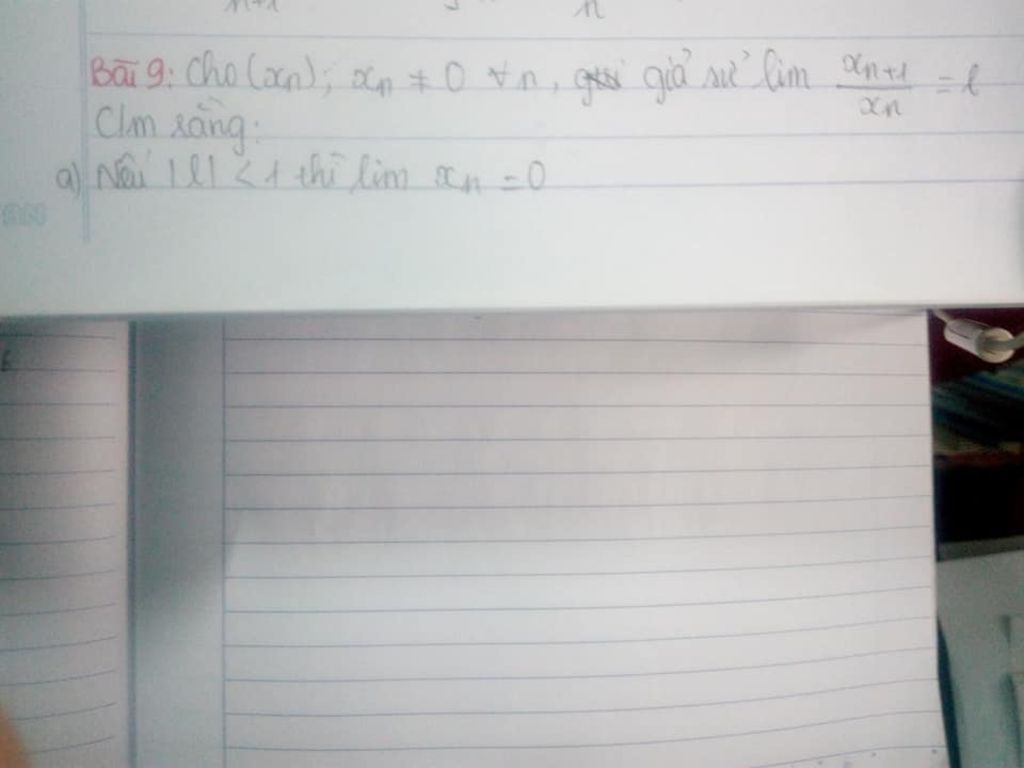 n+1 n
Bài 9: Cho (xn); xn ≠ 0 ∀n, giả sử lim xn+1/xn = l
C/m rằng:
a) Nếu |l| < 1 thì lim xn = 0